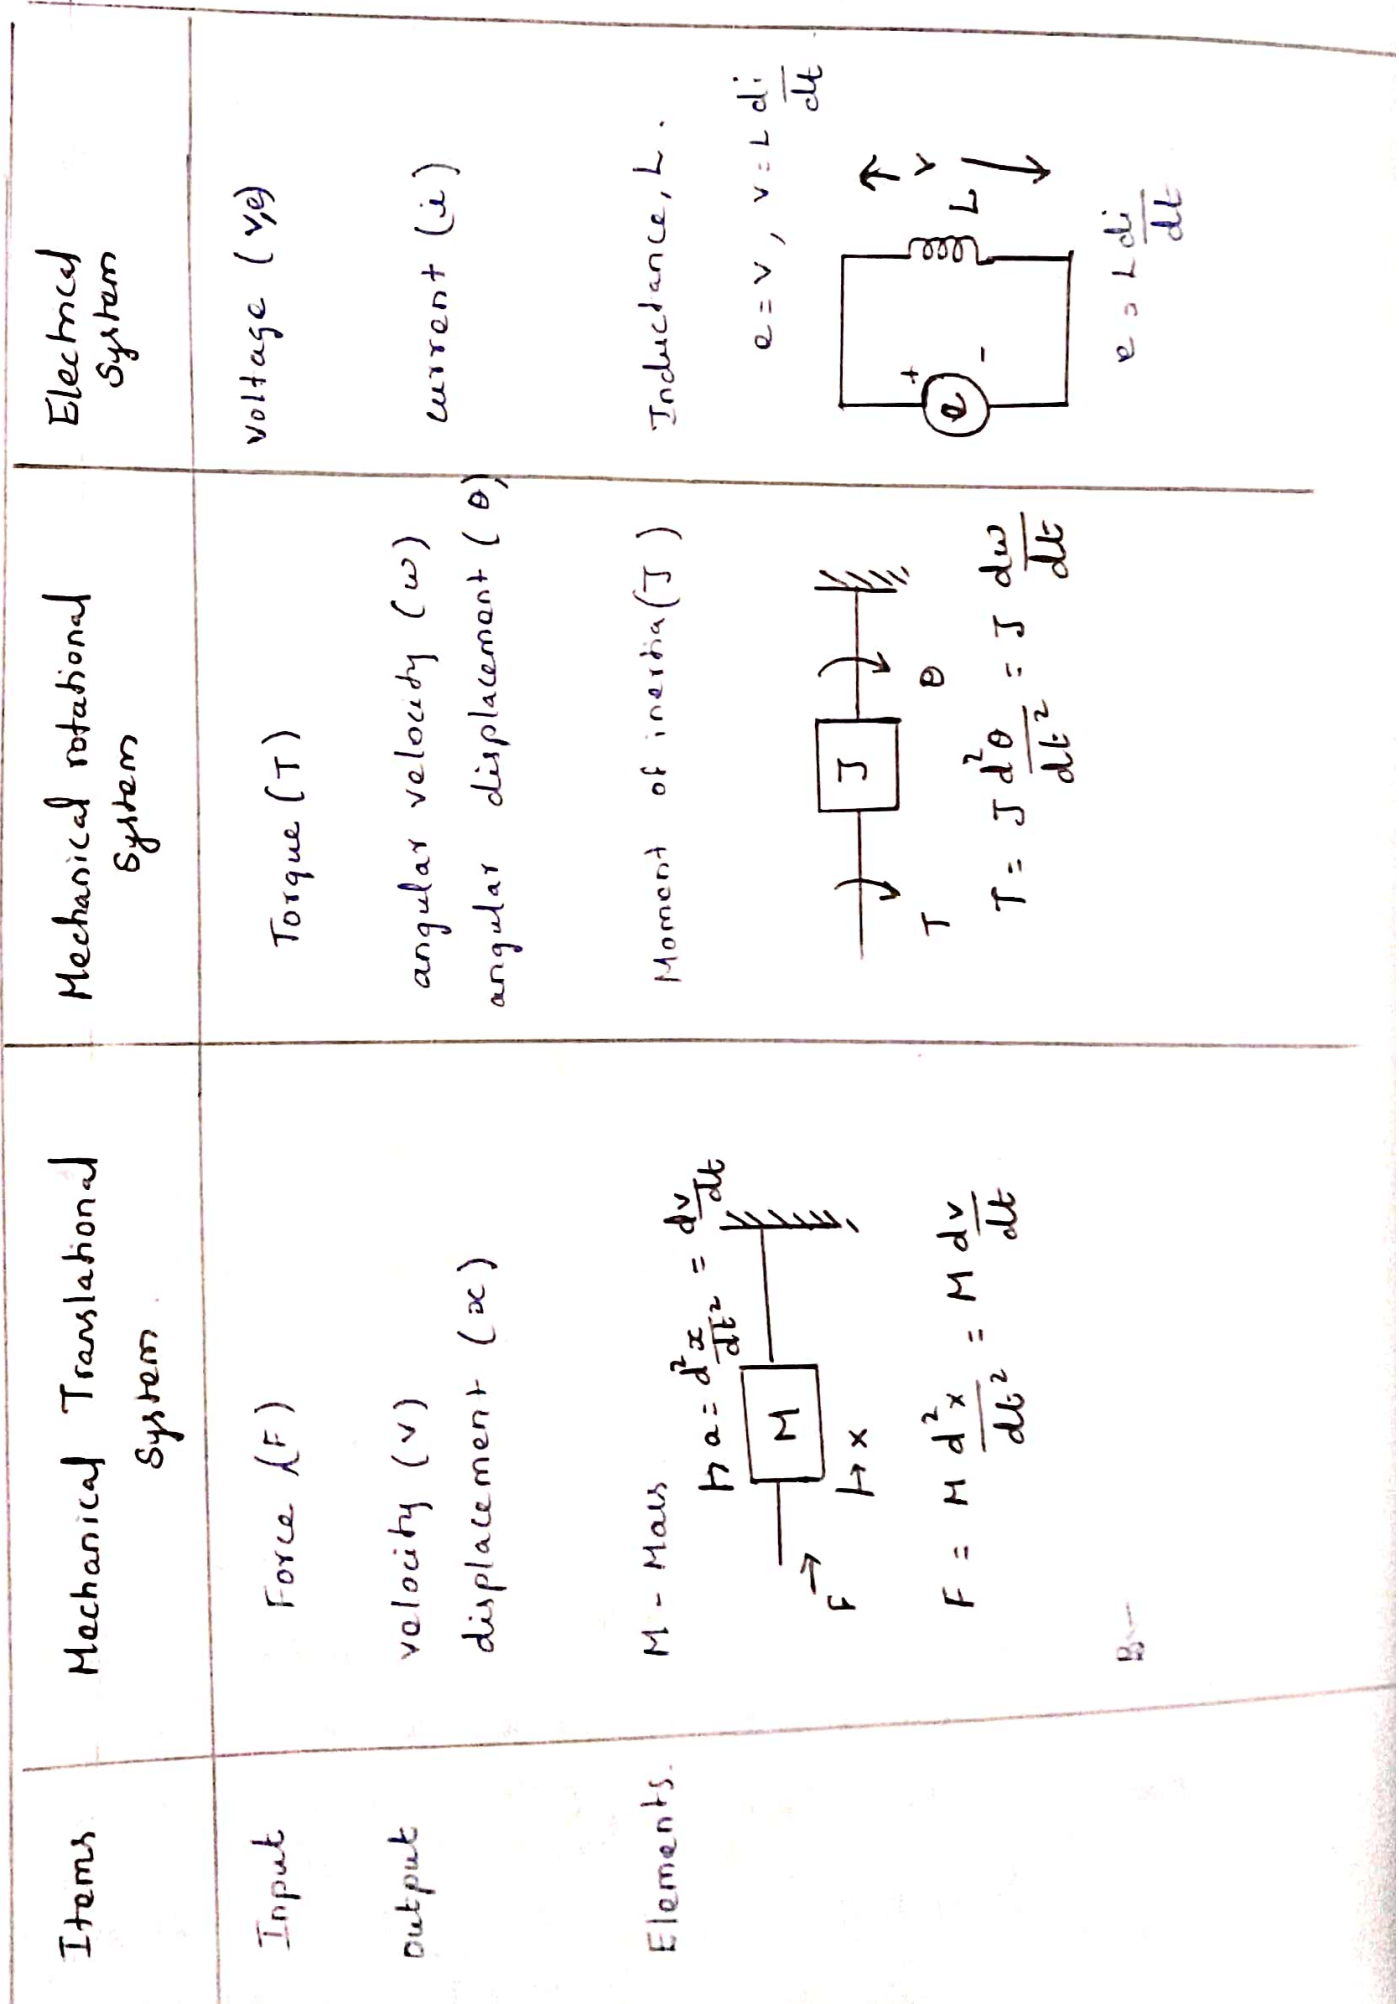 Items
Mechanical Translational System.
Mechanical rotational System
Electrical System
Input
Force (F)
Torque (T)
Voltage (v,e)
output
velocity (v)
displacement (x)
angular velocity (ω)
angular displacement (θ)
current (i)
Elements.
M - Mass
↦ a = d²x/dt² = dv/dt
M
F →
↦ x
F = M d²x/dt² = M dv/dt
B-
Moment of inertia (J)
J
T
θ
T = J d²θ/dt² = J dω/dt
Inductance, L.
e = v, v = L di/dt
+
e
-
L
v
e = L di/dt